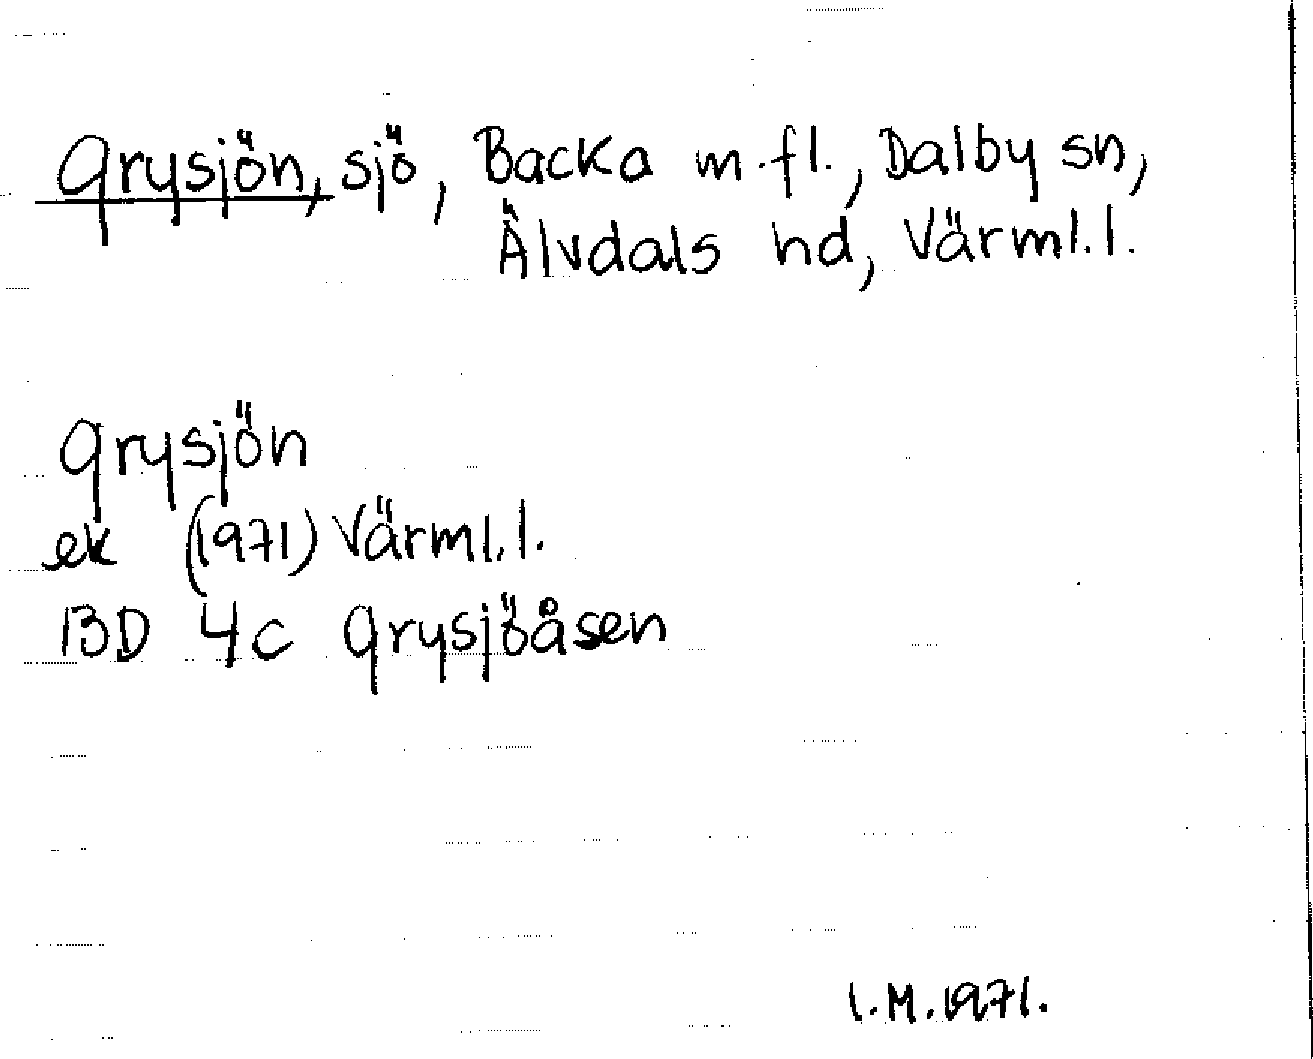 Grysjön, sjö, Backa m.fl., Dalby sn,
Älvdals hd, Värml.l.
Grysjön
ek (1971) Värml.l.
13D 4c Grysjöåsen
I.M.1971.